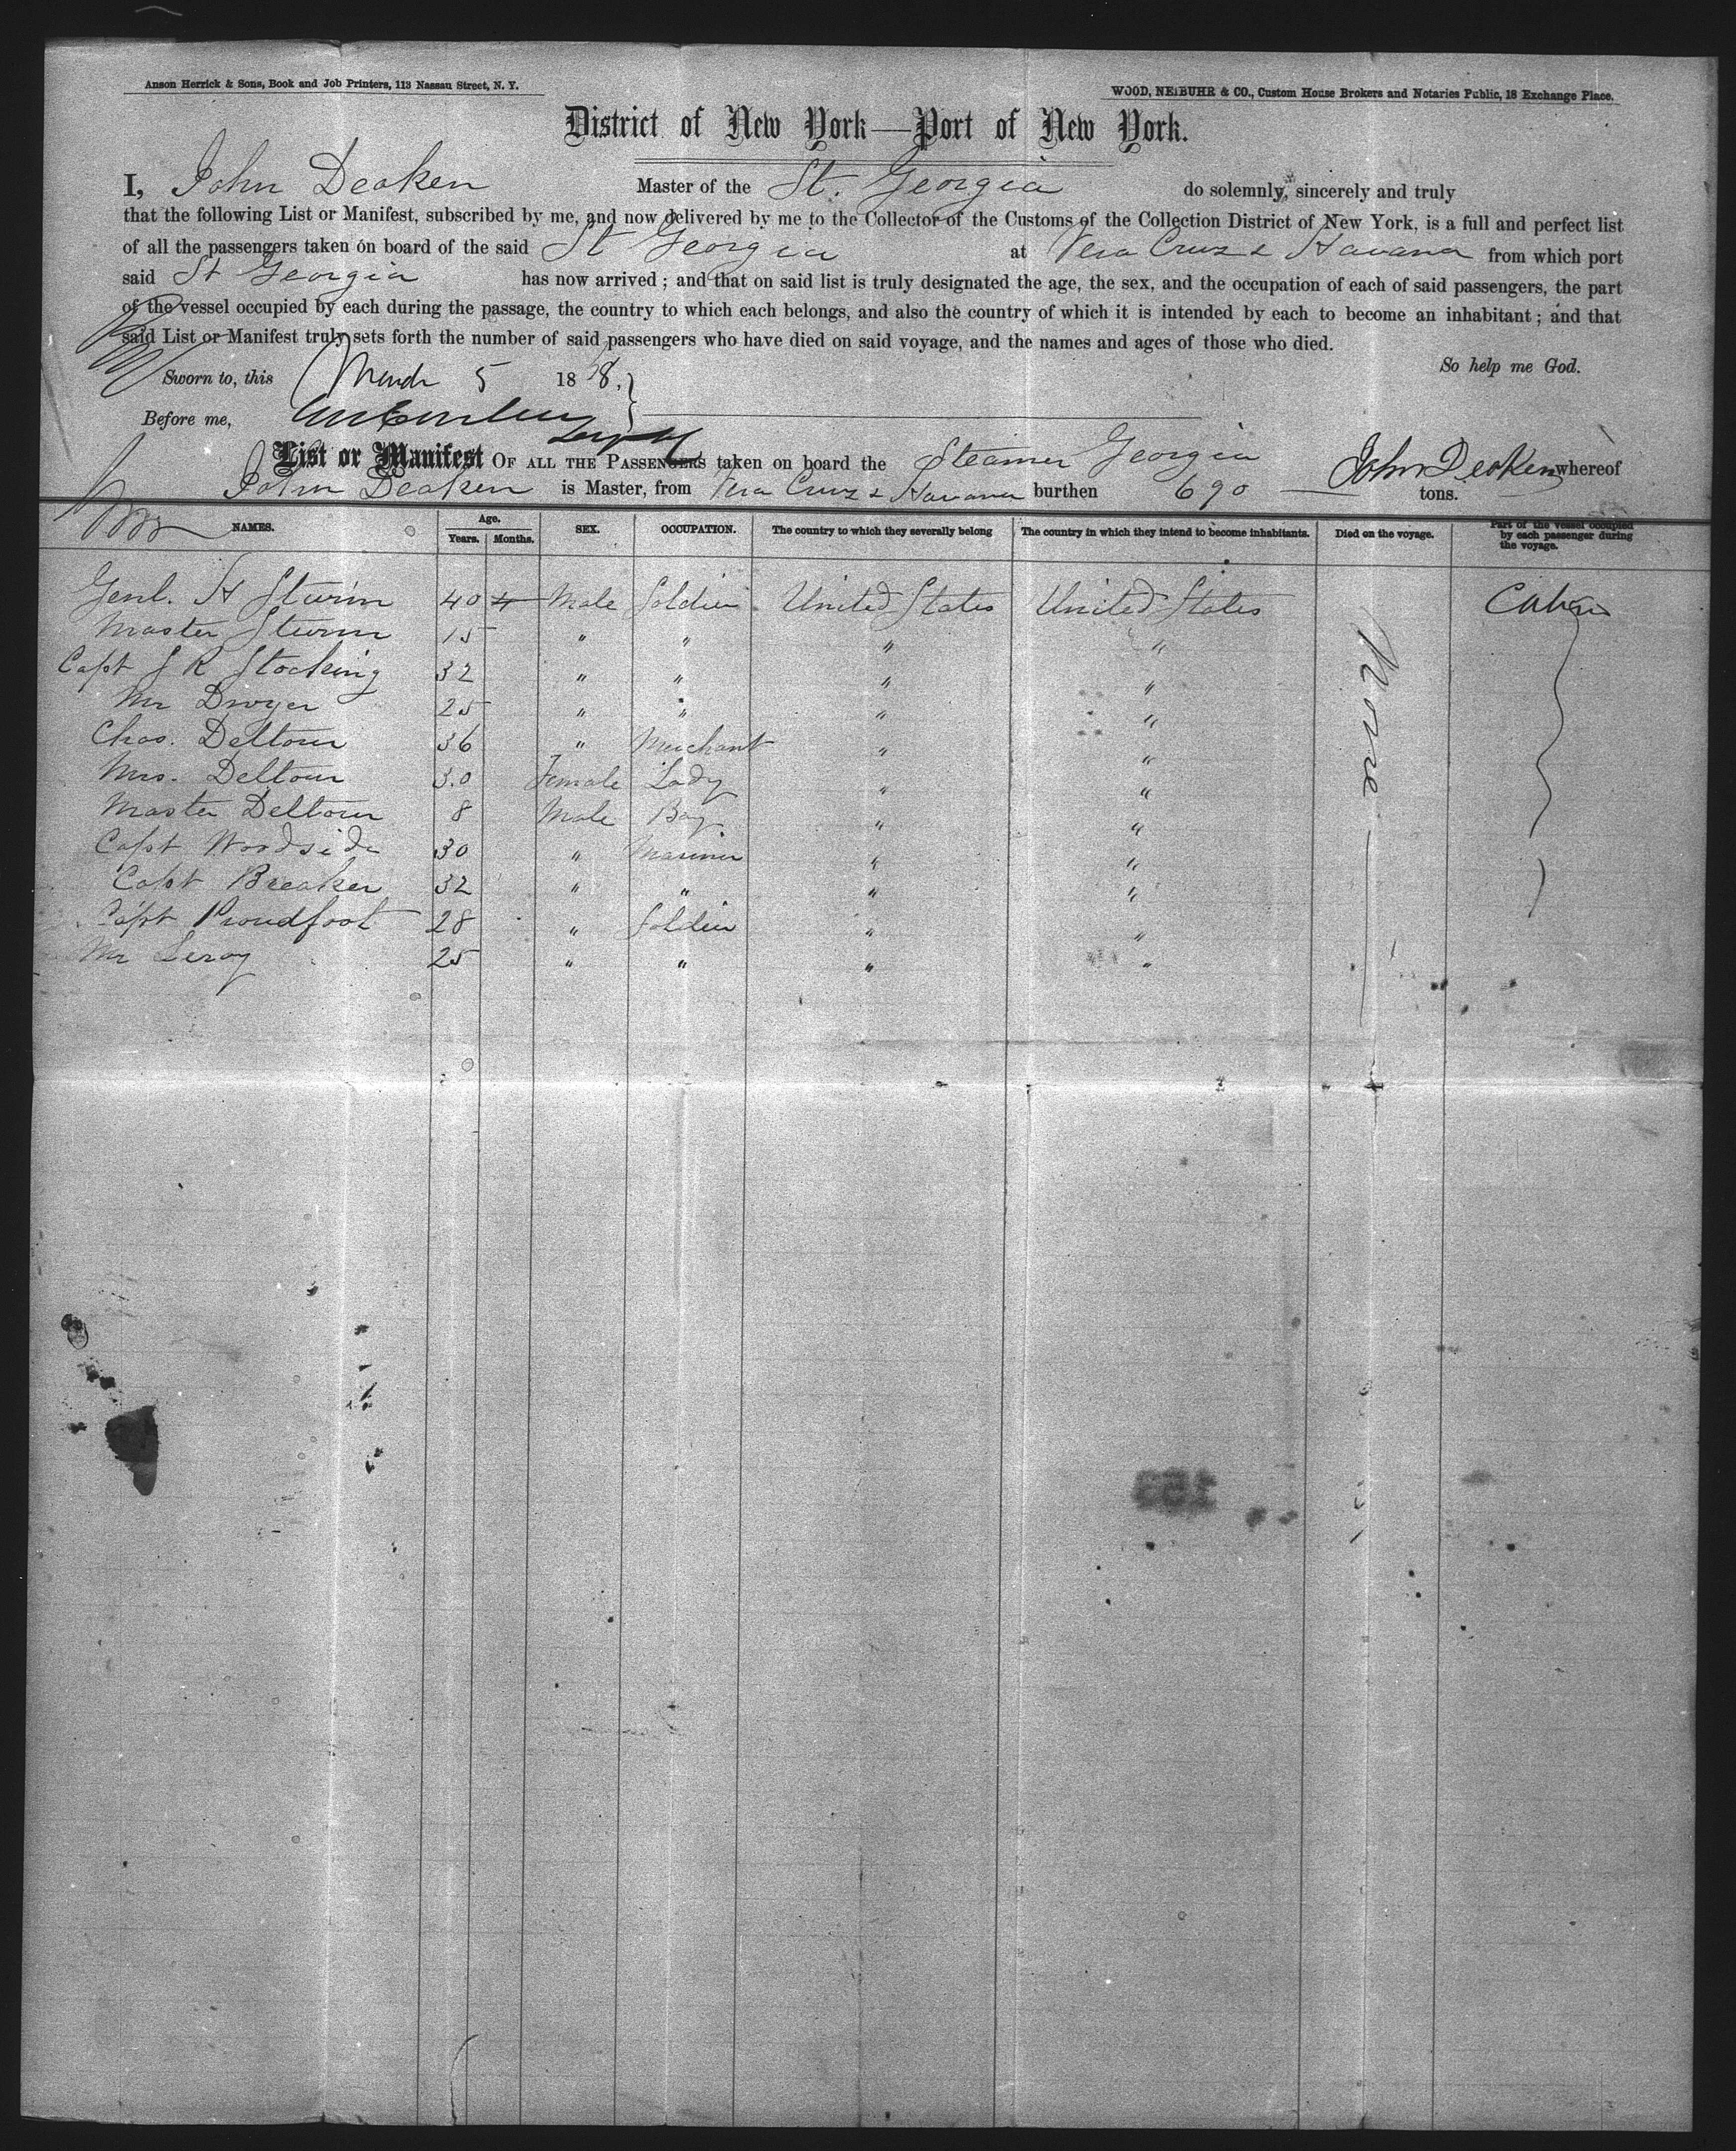 Anson Herrick & Sons, Book and Job Printers, 113 Nassau Street, N. Y.
WOOD, NEIBUHR & CO., Custom House Brokers and Notaries Public, 18 Exchange Place.
District of New York—Port of New York.
I, John Deaken Master of the St. Georgia do solemnly, sincerely and truly
that the following List or Manifest, subscribed by me, and now delivered by me to the Collector of the Customs of the Collection District of New York, is a full and perfect list
of all the passengers taken on board of the said St Georgia at Vera Cruz & Havana from which port
said St Georgia has now arrived ; and that on said list is truly designated the age, the sex, and the occupation of each of said passengers, the part
of the vessel occupied by each during the passage, the country to which each belongs, and also the country of which it is intended by each to become an inhabitant ; and that
said List or Manifest truly sets forth the number of said passengers who have died on said voyage, and the names and ages of those who died.
So help me God.
Sworn to, this March 5 18 8.
Before me,
List or Manifest OF ALL THE PASSENGERS taken on board the Steamer Georgia John Deaken whereof
John Deaken is Master, from Vera Cruz & Havana burthen 690 tons.
NAMES. Age. Years. Months. SEX. OCCUPATION. The country to which they severally belong The country in which they intend to become inhabitants. Died on the voyage. Part of the vessel occupied by each passenger during the voyage.
Genl. H Sturm 40 Male Soldier United States United States None Cabin
Master Sturm 15 " " " "
Capt J R Stocking 32 " " " "
Mr Dwyer 25 " " " "
Chas. Deltour 36 " Merchant " "
Mrs. Deltour 30 Female Lady " "
Master Deltour 8 Male Boy " "
Capt Woodside 30 " Mariner " "
Capt Breaker 32 " " " "
Capt Proudfoot 28 " Soldier " "
Mr Leroy 25 " " " "
153